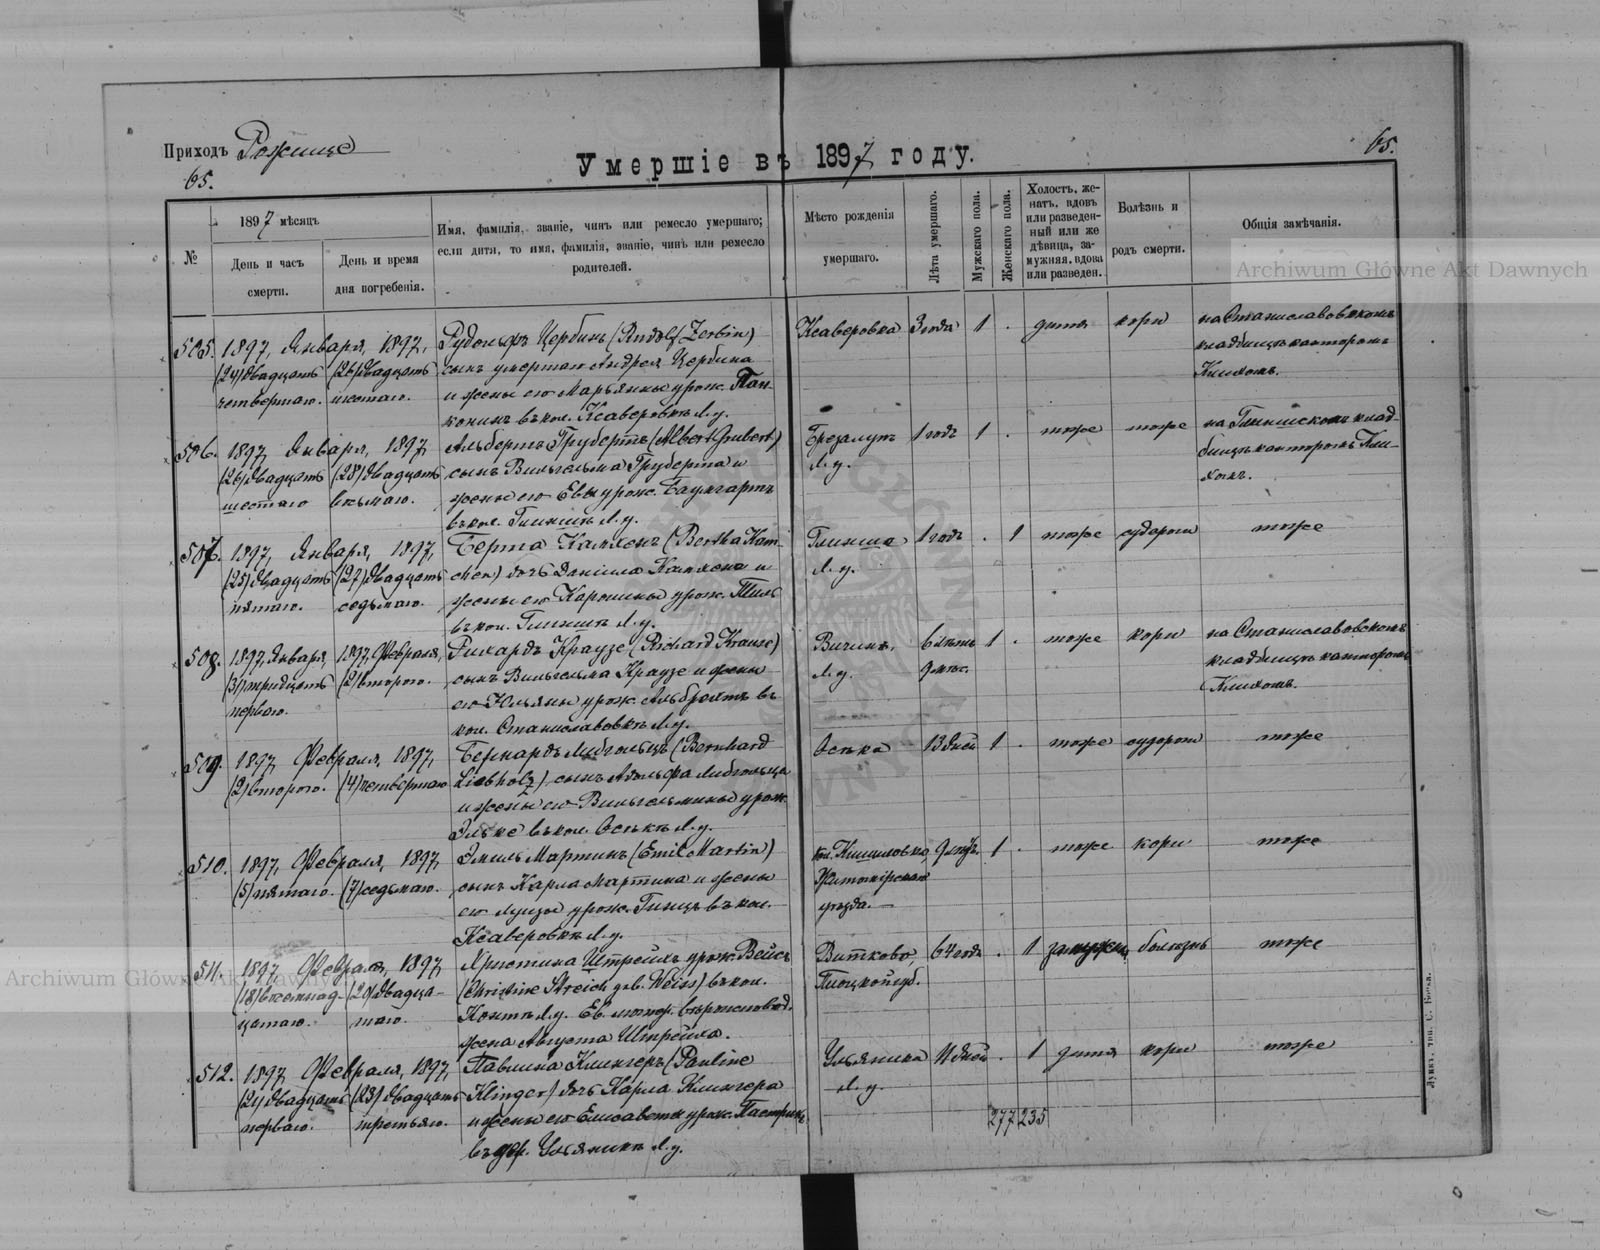 Приходъ Рожище
65.
Умершіе въ 1897 году.
65.
№
1897 мѣсяцъ
День и часъ
смерти.
День и время
дня погребенія.
Имя, фамилія, званіе, чинъ или ремесло умершаго;
если дитя, то имя, фамилія, званіе, чинъ или ремесло
родителей.
Мѣсто рожденія
умершаго.
Лѣта умершаго.
Мужскаго пола.
Женскаго пола.
Холостъ, же-
натъ, вдовъ
или разведен-
ный или же
дѣвица, за-
мужняя, вдова
или разведен.
Болѣзнь и
родъ смерти.
Общія замѣчанія.
Archiwum Główne Akt Dawnych
505. 1897, Января, 1897, Рудольфъ Цербинъ (Rudolf Zerbin) Ксаверовка 3 года 1 . дитя кори на Станиславовскомъ
(24) двадцать (26) двадцать сынъ умершаго Андрея Цербина кладбищѣ канторомъ
четвертаго. шестаго. и жены его Марьянны урож. Пан- Клиномъ.
въ кол. Ксаверовкѣ Л. у.
506. 1897, Января, 1897, Альбертъ Грубертъ (Albert Grubert) 1 годъ 1 . тоже тоже на Глинискомъ клад-
(26) двадцать (28) двадцать сынъ Вильгельма Груберта и Л. у. бищѣ канторомъ
шестаго восьмаго. жены его Евы урож. Баумгартъ
въ кол. Глинище Л. у.
507. 1897, Января, 1897, Берта Камхенъ (Bertha Kam- Глинища 1 годъ . 1 тоже судороги тоже
(25) двадцать (27) двадцать chen) дочь Даніила Камхена и Л. у.
пятаго. седьмаго. жены его Каролины урож. Тиль
въ кол. Глинище Л. у.
508. 1897, Января, 1897, Февраля, Рихардъ Краузе (Richard Krause) 6 лѣтъ 1 . тоже кори на Станиславовскомъ
(31) тридцать (2) второго. сынъ Вильгельма Краузе и жены Л. у. 9 мѣс. кладбищѣ канторомъ
перваго. его Юльяны урож. Альбрехтъ въ Клиномъ.
кол. Станиславовкѣ Л. у.
509. 1897, Февраля, 1897, Бернардъ Либгольцъ (Bernhard Осѣка 13 дней 1 . тоже судороги тоже
(2) второго. (4) четвертаго Liebholz) сынъ Адольфа Либгольца
и жены его Вильгельмины урож.
въ кол. Осѣкѣ Л. у.
510. 1897, Февраля, 1897, Эмиль Мартинъ (Emil Martin) кол. 9 лѣтъ 1 . тоже кори тоже
(5) пятаго. (7) седьмаго. сынъ Карла Мартина и жены Житомірскаго
его Луизы урож. Гинцъ въ кол. уѣзда.
Ксаверовкѣ Л. у.
511. 1897, Февраля, 1897, Христина Штрейхъ урож. Вейсъ Витково, 64 года . 1 замужн. болѣзнь тоже
(18) восемнад- (20) двадца- (Christine Streich geb. Weiss) въ кол. Плоцкой губ.
цатаго. таго. Л. у. Ев. лютер. вѣроисповѣд.
жена Августа Штрейха.
Archiwum Główne Akt Dawnych
512. 1897, Февраля, 1897, Павлина Клингеръ (Pauline Ульяники 11 дней . 1 дитя кори тоже
(21) двадцать (23) двадцать Klinger) дочь Карла Клингера Л. у.
перваго. третьяго. и жены его Елисаветы урож. 277 235
въ дер. Ульяникѣ Л. у.